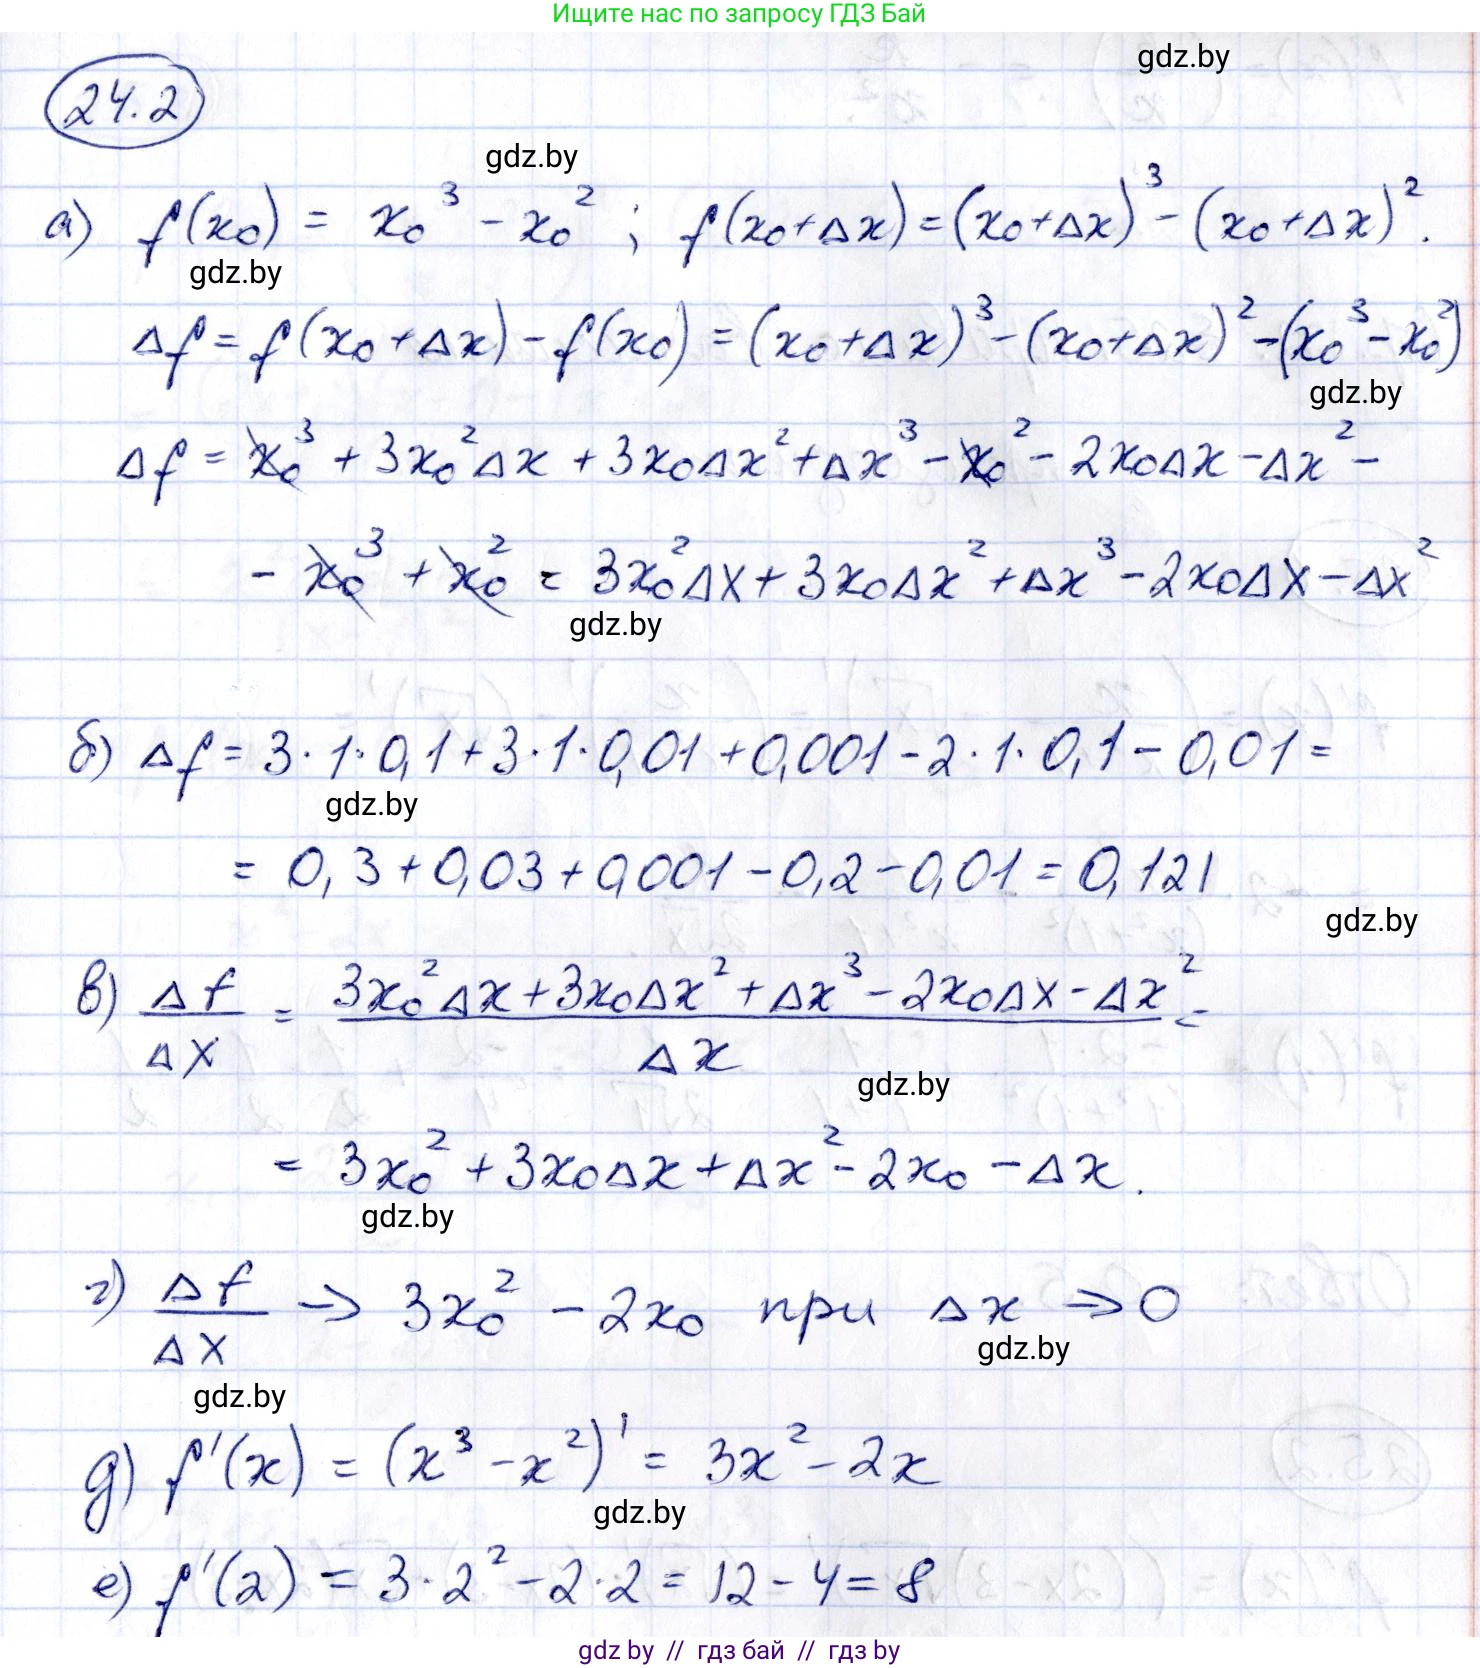 Ищите нас по запросу ГДЗ Бай
gdz.by
24.2
gdz.by
а) f(x₀) = x₀³ - x₀² ; f(x₀+Δx) = (x₀+Δx)³ - (x₀+Δx)².
gdz.by
Δf = f(x₀+Δx) - f(x₀) = (x₀+Δx)³ - (x₀+Δx)² - (x₀³ - x₀²)
gdz.by
Δf = x₀³ + 3x₀²Δx + 3x₀Δx² + Δx³ - x₀² - 2x₀Δx - Δx² -
- x₀³ + x₀² = 3x₀²Δx + 3x₀Δx² + Δx³ - 2x₀Δx - Δx²
gdz.by
б) Δf = 3·1·0,1 + 3·1·0,01 + 0,001 - 2·1·0,1 - 0,01 =
gdz.by
= 0,3 + 0,03 + 0,001 - 0,2 - 0,01 = 0,121
gdz.by
в) Δf/Δx = (3x₀²Δx + 3x₀Δx² + Δx³ - 2x₀Δx - Δx²)/Δx =
gdz.by
= 3x₀² + 3x₀Δx + Δx² - 2x₀ - Δx.
gdz.by
г) Δf/Δx → 3x₀² - 2x₀ при Δx → 0
gdz.by
gdz.by
д) f'(x) = (x³ - x²)' = 3x² - 2x
gdz.by
е) f'(2) = 3·2² - 2·2 = 12 - 4 = 8
gdz by // гдз бай // гдз by